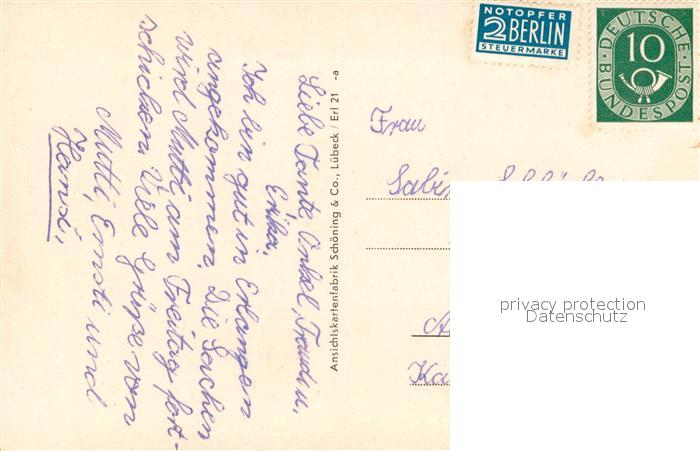 NOTOPFER
2 BERLIN
STEUERMARKE
DEUTSCHE
10
BUNDESPOST
Liebe Tante, Onkel, Traudi u.
Erika.
Ich bin gut in Erlangen
angekommen. Die Sachen
wird Mutti am Freitag fort-
schicken. Viele Grüße von
Mutti, Ernsti und
Hansi,
Ansichtskartenfabrik Schöning & Co., Lübeck / Erl 21 -a
Frau
privacy protection
Datenschutz